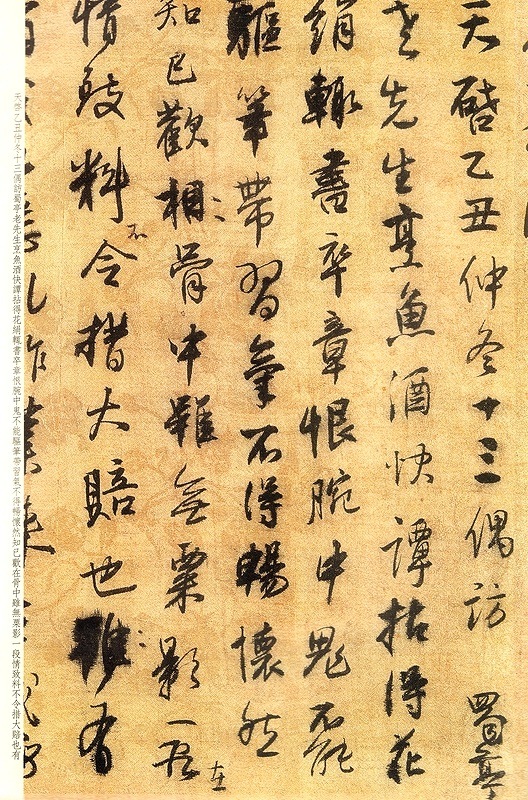 天啓乙丑仲冬十三偶訪蜀亭
老先生烹魚酒快譚拈得花
絹輒書卒章恨腕中鬼不能
驅筆帶習氣不得暢懷然
知己歡相骨中雖無粟影一段
在
情致料令措大賠也雖有
不
天啓乙丑仲冬十三偶訪蜀亭老先生烹魚酒快譚拈得花絹輒書卒章恨腕中鬼不能驅筆帶習氣不得暢懷然知己歡在骨中雖無粟影一段情致料不令措大賠也有